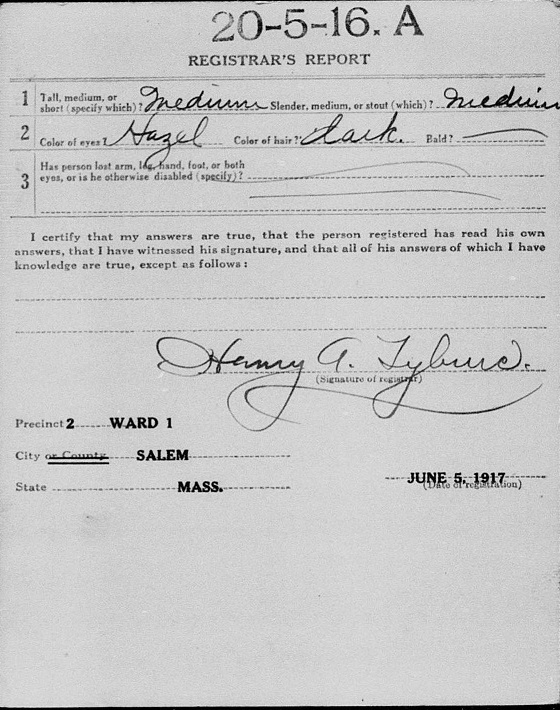 20-5-16. A
REGISTRAR'S REPORT
1 Tall, medium, or short (specify which)? Medium Slender, medium, or stout (which)? Medium
2 Color of eyes? Hazel Color of hair? dark. Bald?
3 Has person lost arm, leg, hand, foot, or both
eyes, or is he otherwise disabled (specify)?
I certify that my answers are true, that the person registered has read his own
answers, that I have witnessed his signature, and that all of his answers of which I have
knowledge are true, except as follows:
Henry A.
(Signature of registrar)
Precinct 2 WARD 1
City or County SALEM
State MASS.
JUNE 5, 1917
(Date of registration)